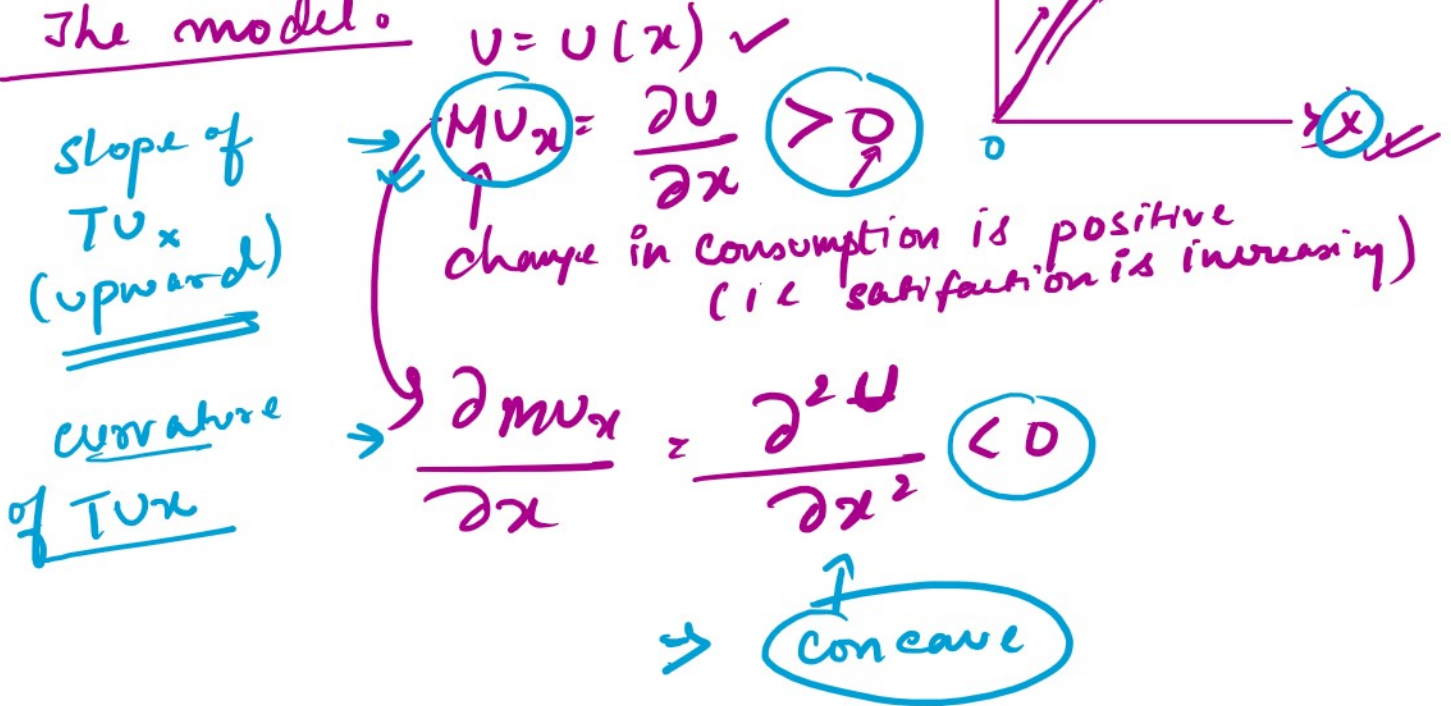 The model.
U = U(x) ✓
slope of TUx (upward)
→ MUx = ∂U/∂x > 0
0 x
change in consumption is positive
(ie satifaction is increasing)
curvature of TUx
→ ∂MUx/∂x = ∂²U/∂x² < 0
⇒ concave